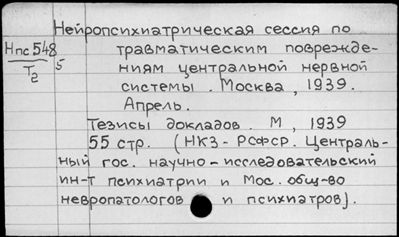 Нейропсихиатрическая сессия по
Нпс 548
5
Т2
травматическим поврежде-
ниям центральной нервной
системы. Москва, 1939.
Апрель.
Тезисы докладов. М, 1939
55 стр. (НКЗ-РСФСР. Централь-
ный гос. научно-исследовательский
ин-т психиатрии и Мос. общ-во
невропатологов и психиатров).